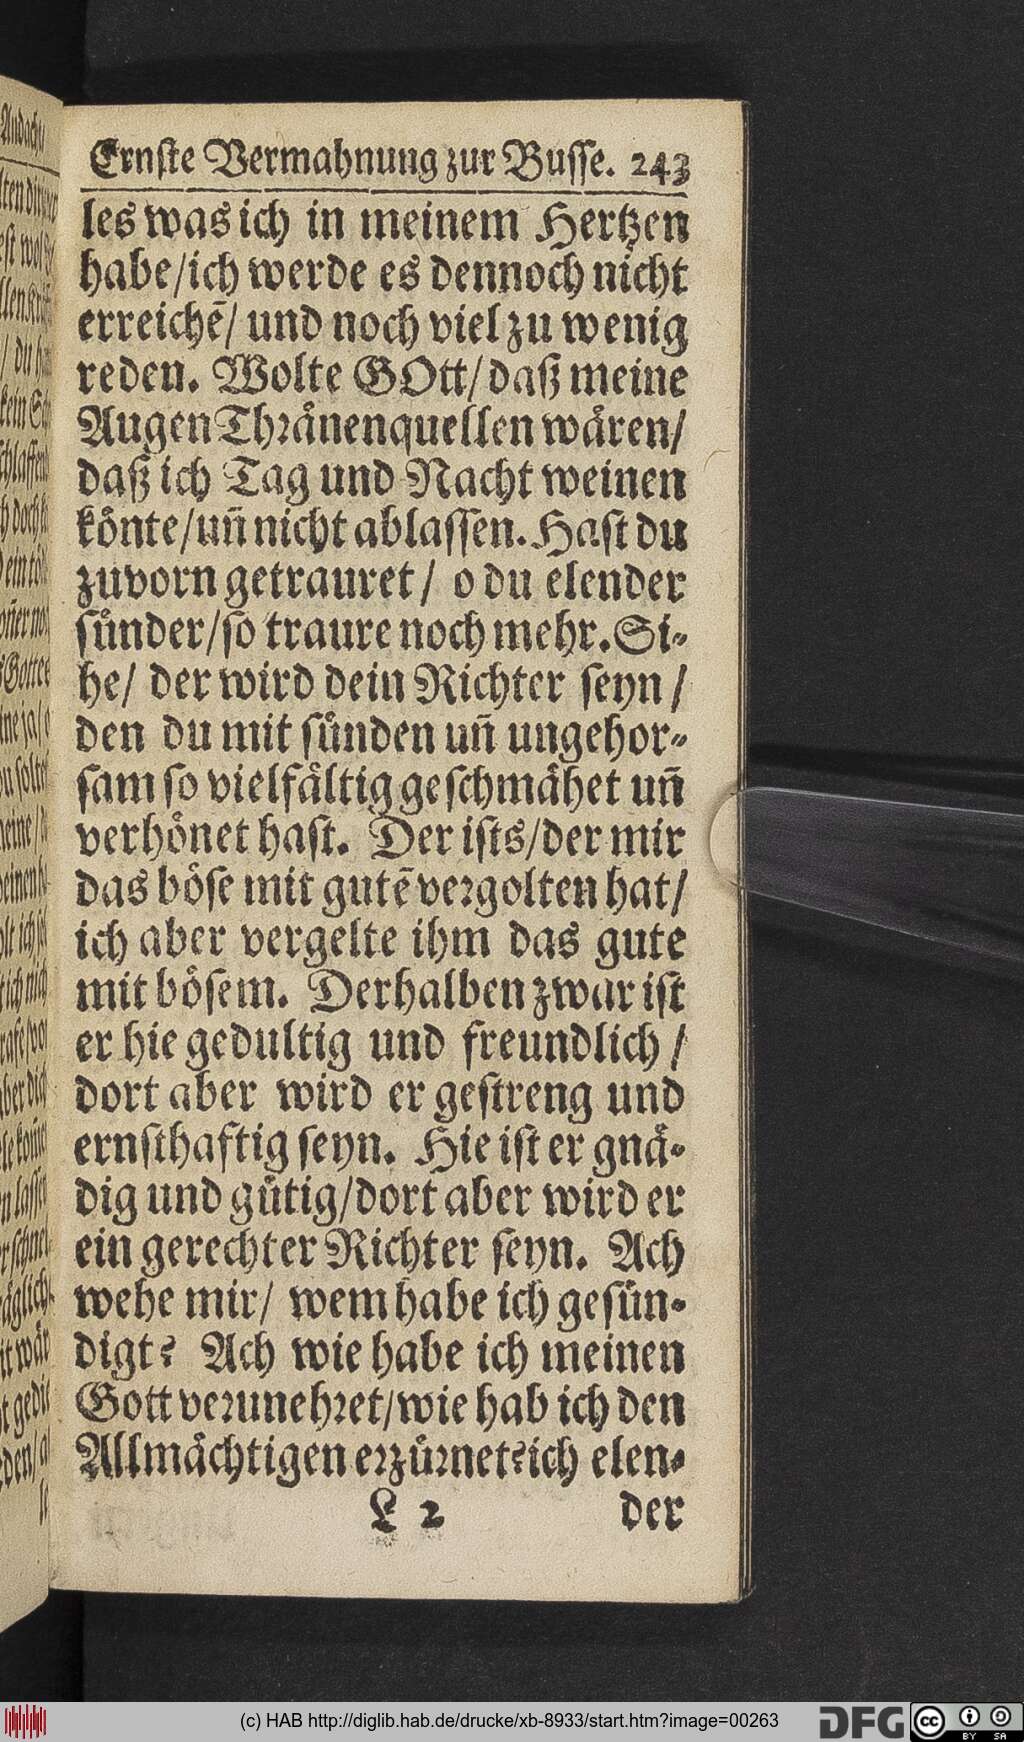 Ernſte Vermahnung zur Buſſe. 243
les was ich in meinem Hertzen
habe/ich werde es dennoch nicht
erreichē/ und noch viel zu wenig
reden. Wolte GOtt/daß meine
Augen Thraͤnenquellen waͤren/
daß ich Tag und Nacht weinen
koͤnte/uñ nicht ablaſſen. Haſt du
zuvorn getrauret/ o du elender
ſuͤnder/ſo traure noch mehr. Si-
he/ der wird dein Richter ſeyn/
den du mit ſuͤnden uñ ungehor-
ſam ſo vielfaͤltig geſchmaͤhet uñ
verhoͤnet haſt. Der iſts/der mir
das boͤſe mit gutē vergolten hat/
ich aber vergelte ihm das gute
mit boͤſem. Derhalben zwar iſt
er hie gedultig und freundlich/
dort aber wird er geſtreng und
ernſthaftig ſeyn. Hie iſt er gnaͤ-
dig und guͤtig/dort aber wird er
ein gerechter Richter ſeyn. Ach
wehe mir/ wem habe ich geſuͤn-
digt? Ach wie habe ich meinen
Gott verunehret/wie hab ich den
Allmaͤchtigen erzuͤrnet?ich elen-
L 2 der
(c) HAB http://diglib.hab.de/drucke/xb-8933/start.htm?image=00263
DFG
cc BY SA